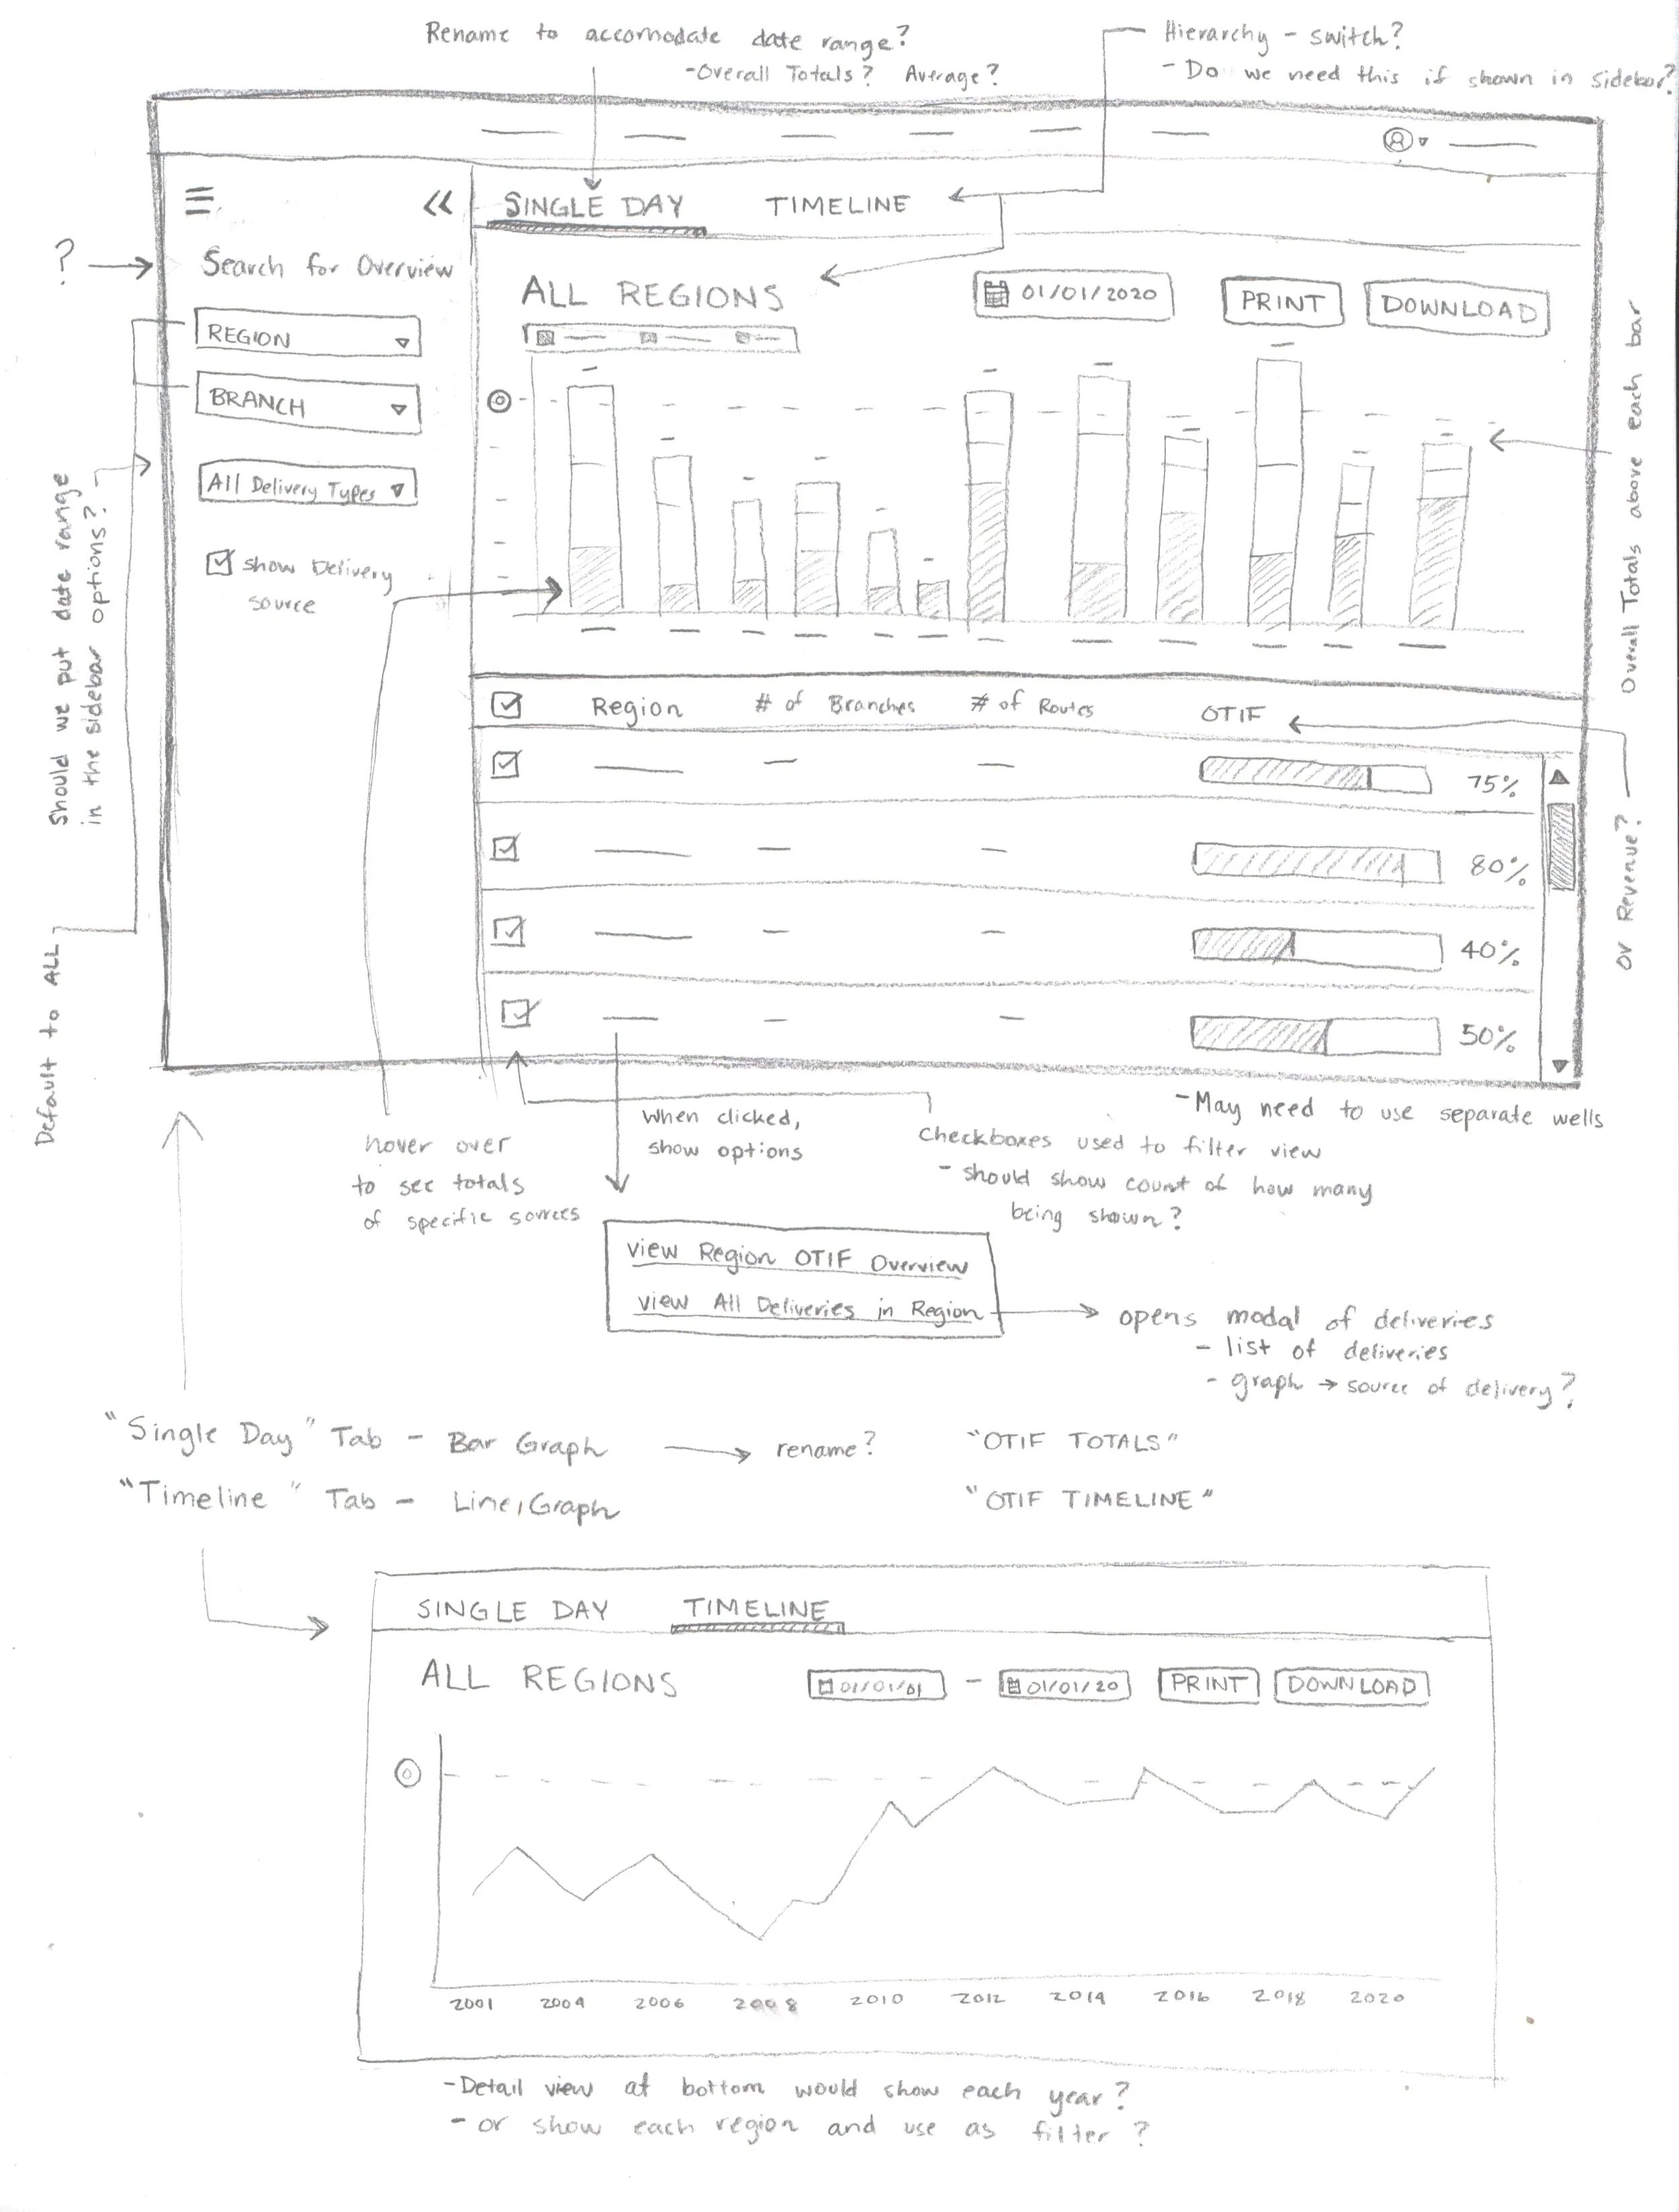 Rename to accomodate date range?
-Overall Totals? Average?
Hierarchy - switch?
- Do we need this if shown in sidebar?
SINGLE DAY TIMELINE
?
Search for Overview
REGION
BRANCH
All Delivery Types
show Delivery
source
ALL REGIONS
01/01/2020
PRINT
DOWNLOAD
Should we put date range
in the sidebar options?
Default to ALL
Overall Totals above each bar
or Revenue?
Region # of Branches # of Routes OTIF
75%
80%
40%
50%
-May need to use separate wells
hover over
to see totals
of specific sources
When clicked,
show options
Checkboxes used to filter view
- should show count of how many
being shown?
view Region OTIF Overview
view All Deliveries in Region
opens modal of deliveries
- list of deliveries
- graph → source of delivery?
"Single Day" Tab - Bar Graph → rename? "OTIF TOTALS"
"Timeline" Tab - Line Graph "OTIF TIMELINE"
SINGLE DAY TIMELINE
ALL REGIONS
01/01/01 - 01/01/20
PRINT
DOWNLOAD
2001 2004 2006 2008 2010 2012 2014 2016 2018 2020
-Detail view at bottom would show each year?
- or show each region and use as filter?